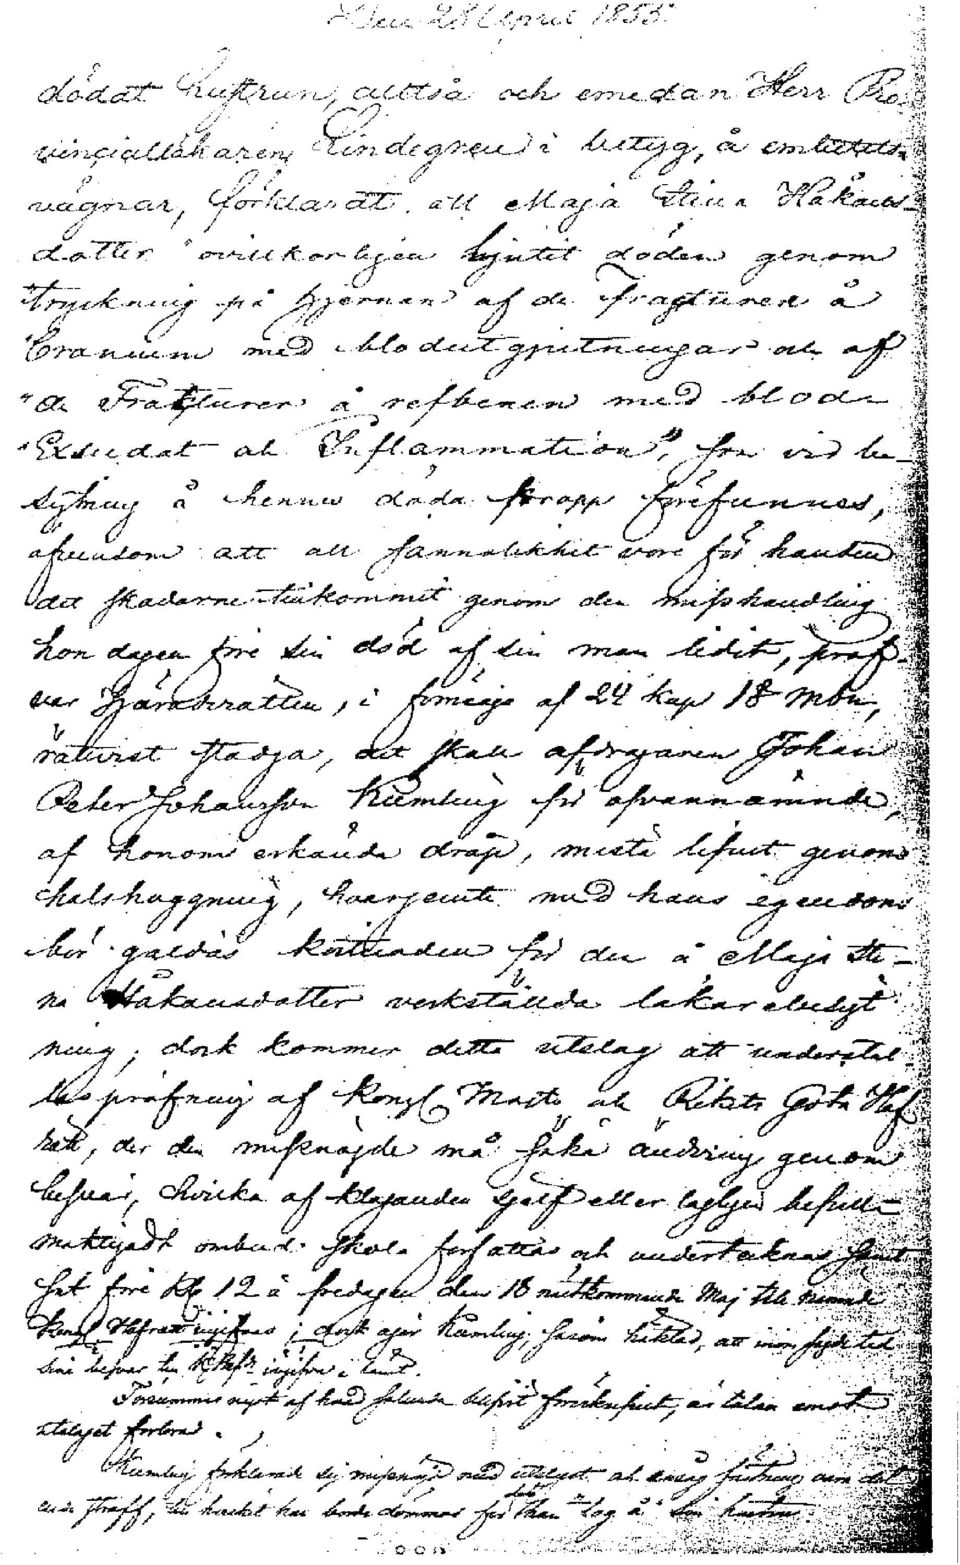 Den 28 April 1855.
dödat hustrun, alltså och emedan Herr Pro-
vincialläkaren Lindegren i betyg, å embetets
vägnar, förklarat att Maja Stina Håkans-
dotter "ovilkorligen ljutit döden genom
"tryckning på hjernan af de Fracturer å
"Cranium med blodutgjutningar och af
"de Frakturer å refbenen med blod-
"Exsudat och Inflammation", som vid be-
sigtning å hennes döda kropp förefunnes,
äfvensom att all sannolikhet vore för handen
det skadorne tillkommit genom den misshandling
hon dagen före sin död af sin man lidit, pröf-
var Häradsrätten, i förmåga af 24 kap 18 MBn,
rättvist stadga, det skall afdragaren Johan
Peter Johansson Kumling för ofvannämnde,
af honom erkända dråp, mista lifvet genom
halshuggning, hvarjemte med hans egendom
bör galdas kostnaden för den å Maja Sti-
na Håkansdotter verkställda läkarebesigt
ning; dock kommer detta utslag att underställ
las pröfning af Kongl Majts och Rikets Göta Hof
rätt, der den missnöjde må söka ändring genom
besvär, hvilka af klaganden sjelf eller lagligen befull-
mäktigadt ombud skola författas och undertecknas samt
sist före Kl 12 å fredagen den 18 nästkommande Maj till nämnde
Kongl Hofrätt ingifvas; dock äger Kumling, såsom häktad, att inom samma tid
sina besvär till ingifva
Försummas något af hvad sålunda blifvit föreskrifvit, är talan emot
utslaget förlorad.
Kumling förklarade sig missnöjd med utslaget och
straff, till hvilket han borde dömmas för det han tog å sin hustru.